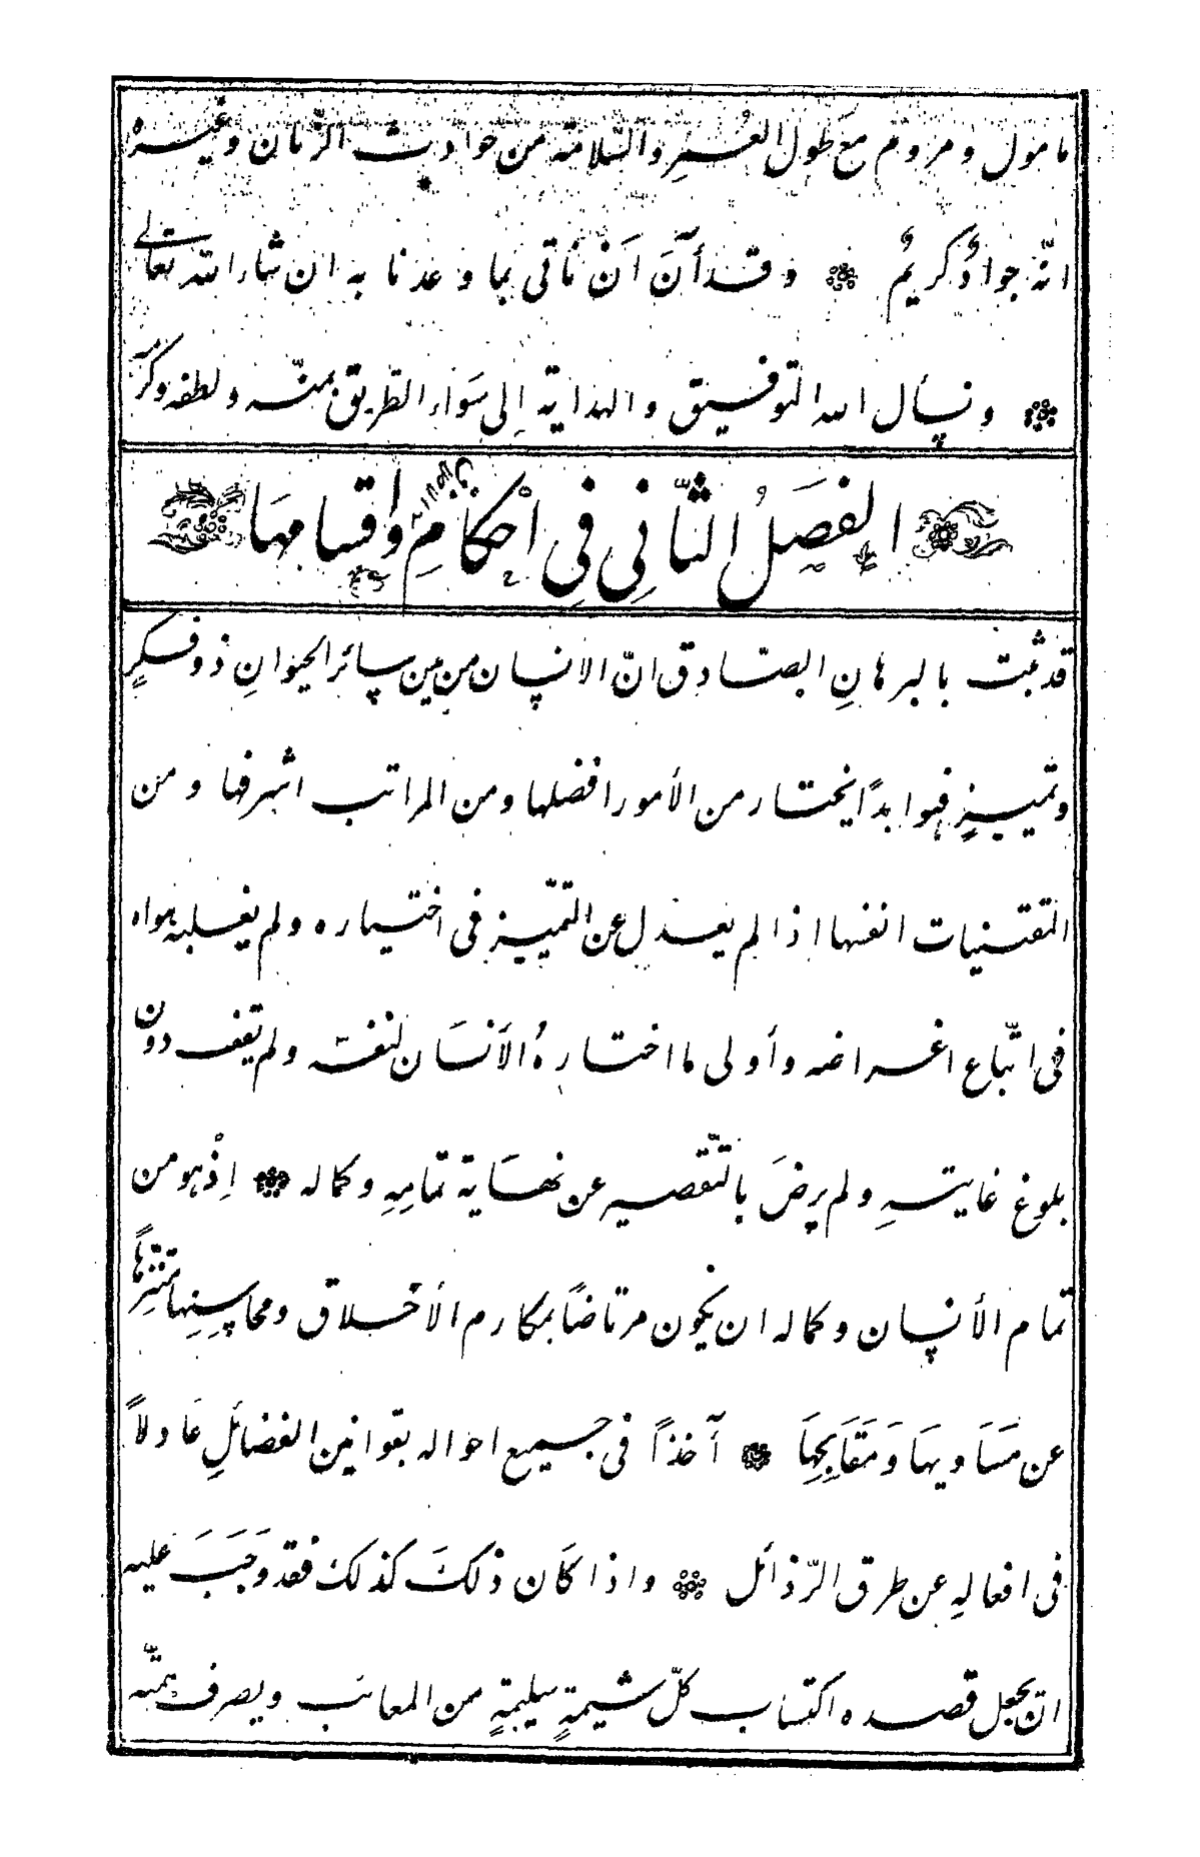 مامول ومروم مع طول العمر والسّلامة من حوادث الزّمان وغيره
انّه جوادٌ كريمٌ وقد أنَ اَنْ نأتى بما وعدنا به ان شاء الله تعالى
ونسأل الله التوفيق والهداية اِلى سَواء الطّريق بمنّه ولطفه وكرمه
الفصَلُ الثّانِى فِى اَحْكامِ الاخلاق واقسامهَا
قد ثبت بالبرهانِ الصّادق انّ الانسان من بين سائر الحيَوانِ ذو فكرٍ
وتمييزٍ فهو ابدًا يختار من الأمور افضلها ومن المراتب اشرفها ومن
المقتنيات انفسها اذا لم يعدل عن التّمييز فى اختياره ولم يغلبه هواه
فى اتّباع اغراضه وأولى ما اختارهُ الأنسَان لنفسه ولم يقف دون
بلوغ غايتهِ ولم يرضَ بالتّقصير عن نهَاية تمامِهِ وكماله اِذْ هو من
تمام الأنسان وكماله ان يكون مرتاضًا بمكارم الأخلاق ومحاسِنِها متنزِّهاً
عن مَسَاويهَا وَمَقَابِحِهَا آخذاً فى جميع احواله بقوانين الفضائلِ عَادلاً
فى افعالهِ عن طرق الرّذائل واذا كَان ذلكَ كذلك فقد وَجَبَ عليه
ان يجعل قصده اكتساب كلّ شيمةٍ سليمةٍ من المعائب ويصرف همّته